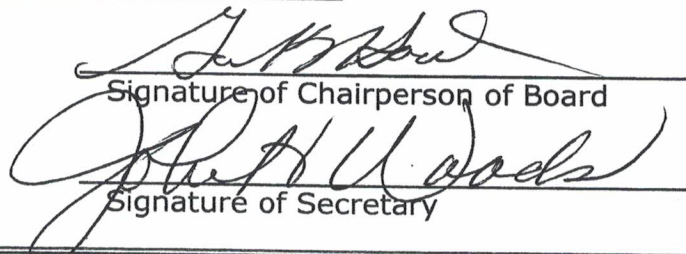 Signature of Chairperson of Board
John H Woods
Signature of Secretary